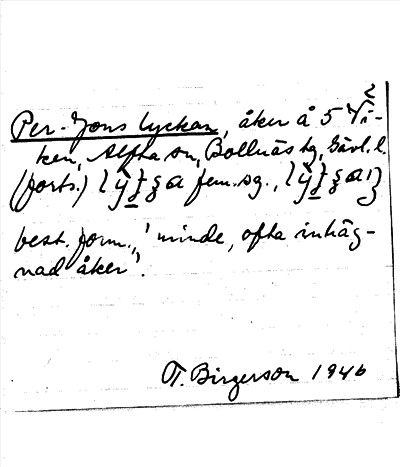 2
Per-Jons lyckan, åker å 5 Vi-
ken, Alfta sn, Bollnäs tg, Gävl. l.
(forts.) fem. sg.,
best. form., 'mindre, ofta inhäg-
nad åker'.
T. Birgerson 1946